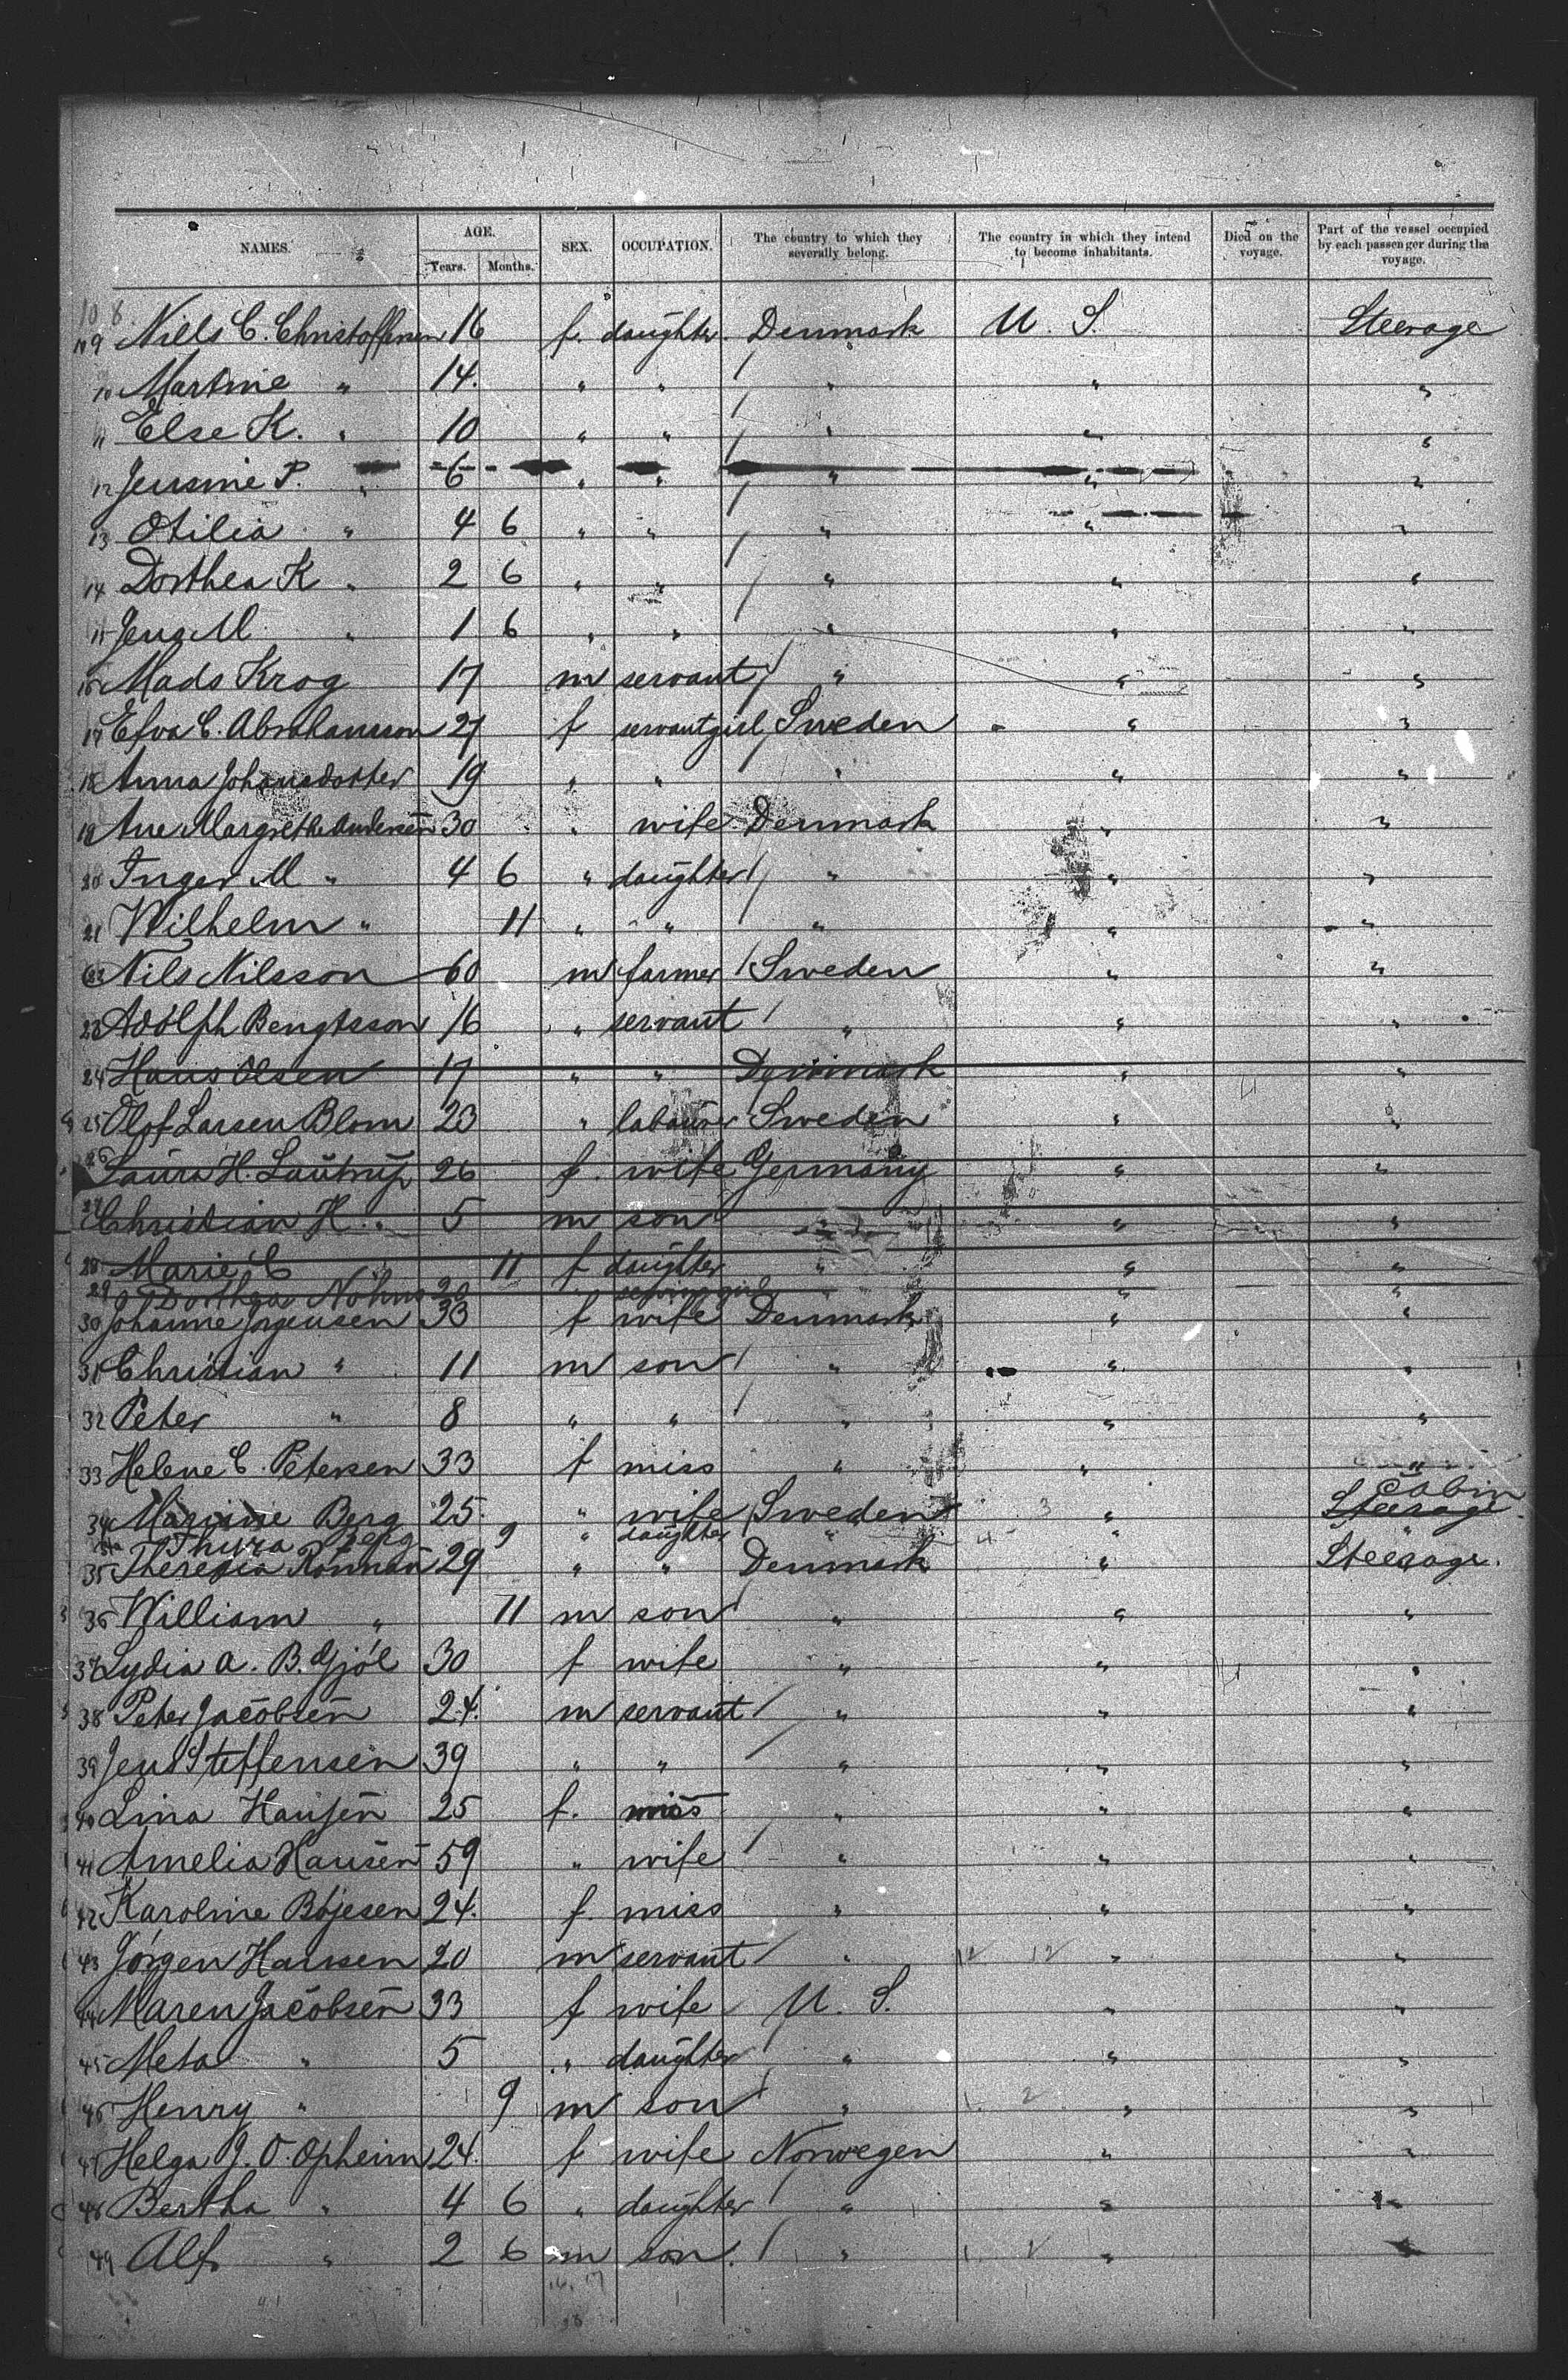 NAMES. AGE. SEX. OCCUPATION. The country to which they severally belong. The country in which they intend to become inhabitants. Died on the voyage. Part of the vessel occupied by each passenger during the voyage.
Years. Months.
108.
109 Niels C. Christoffersen 16 f. daughter Denmark U. S. Steerage
10 Martine " 14. " " " " "
11 Else K. " 10 " " " " "
12 Jensine P. " 6 " " " " "
13 Otilia " 4 6 " " " " "
14 Dorthea K " 2 6 " " " " "
15 Jens M. " 1 6 " " " " "
16 Mads Krog 17 m servant " " "
17 Efva C. Abrahamson 27 f servantgirl Sweden " "
18 Anna Johansdotter 19 " " " " "
19 Ane Margrethe Andersen 30 " wife Denmark " "
20 Inger M " 4 6 " daughter " " "
21 Wilhelm " 11 " " " " "
22 Nils Nilsson 60 m farmer Sweden " "
23 Adolph Bengtsson 16 " servant " " "
24 Hans Olsen 17 " " Denmark " "
25 Olof Larsen Blom 23 " labourer Sweden " "
26 Laura H. Lautrup 26 f. wife Germany " "
27 Christian H. " 5 m son " " "
28 Marie C 11 f daughter " " "
29 Dorthea Nohns 20 " " "
30 Johanne Jorgensen 33 f wife Denmark " "
31 Christian " 11 m son " " "
32 Peter " 8 " " " " "
33 Helene C. Petersen 33 f miss " " "
Cabin
34 Marine Berg 25. " wife Sweden " Steerage
34a Thyra Berg 9 " daughter " " "
35 Theresia Ronnau 29 " " Denmark " Steerage.
36 William " 11 m son " " "
37 Lydia A. B. Gjöl 30 f wife " " "
38 Peter Jacobsen 24. m servant " " "
39 Jens Steffensen 39 " " " " "
40 Lina Hansen 25 f. miss " " "
41 Amelia Hansen 59 " wife " " "
42 Karoline Böjesen 24. f. miss " " "
43 Jörgen Hansen 20 m servant " " "
44 Maren Jacobsen 33 f wife U. S. " "
45 Meta " 5 " daughter " " "
46 Henry " 9 m son " " "
47 Helga J. O. Opheim 24. f wife Norwegen " "
48 Bertha " 4 6 " daughter " " "
49 Alf " 2 6 m son. " "